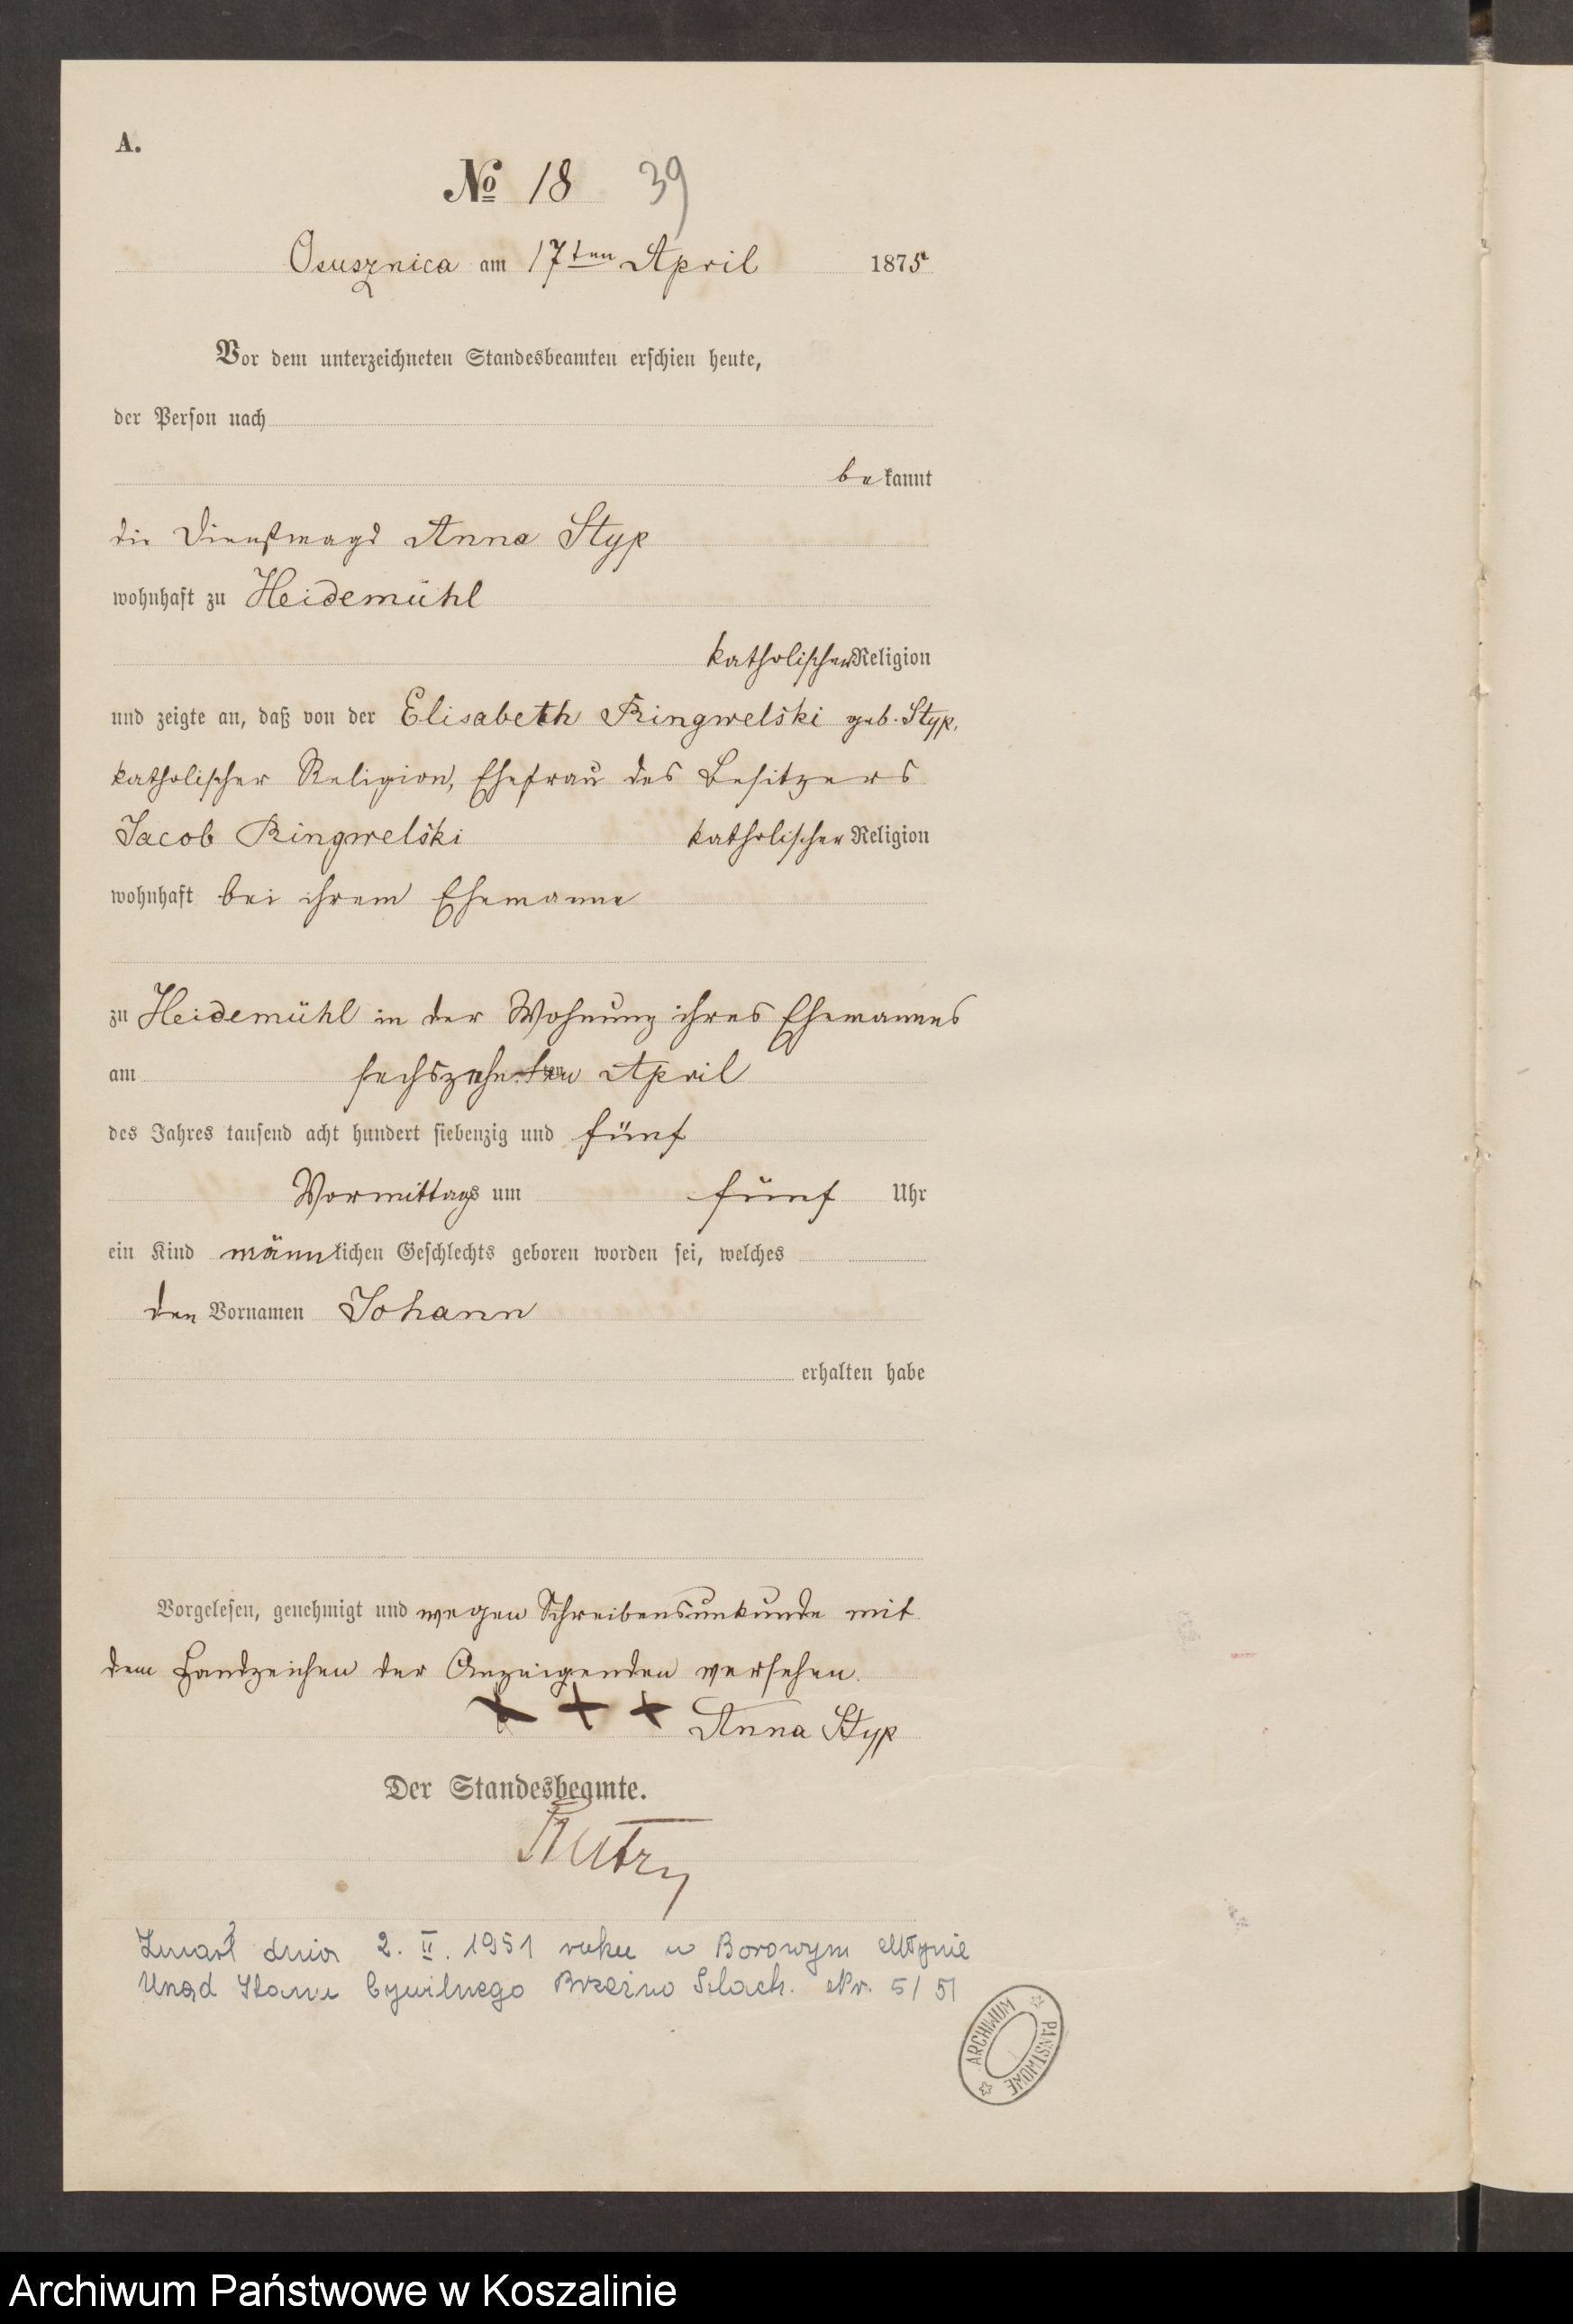 A.
No 18 39
Osusznica am 17ten April 1875
Vor dem unterzeichneten Standesbeamten erschien heute,
der Person nach
bekannt
die Dienstmagd Anna Styp
wohnhaft zu Heidemühl
katholischer Religion
und zeigte an, daß von der Elisabeth Ringwelski geb. Styp,
katholischer Religion, Ehefrau des Besitzers
Jacob Ringwelski katholischer Religion
wohnhaft bei ihrem Ehemanne
zu Heidemühl in der Wohnung ihres Ehemannes
am sechszehnten April
des Jahres tausend acht hundert siebenzig und fünf
Vormittags um fünf Uhr
ein Kind männlichen Geschlechts geboren worden sei, welches
den Vornamen Johann
erhalten habe
Vorgelesen, genehmigt und wegen Schreibensunkunde mit
dem Handzeichen der Anzeigenden versehen.
+ + + Anna Styp
Der Standesbeamte.
Zmarł dnia 2. II. 1951 roku w Borowym Młynie
Urząd Stanu Cywilnego Brzeźno Szlach. Nr. 5/51
ARCHIWUM PAŃSTWOWE
Archiwum Państwowe w Koszalinie